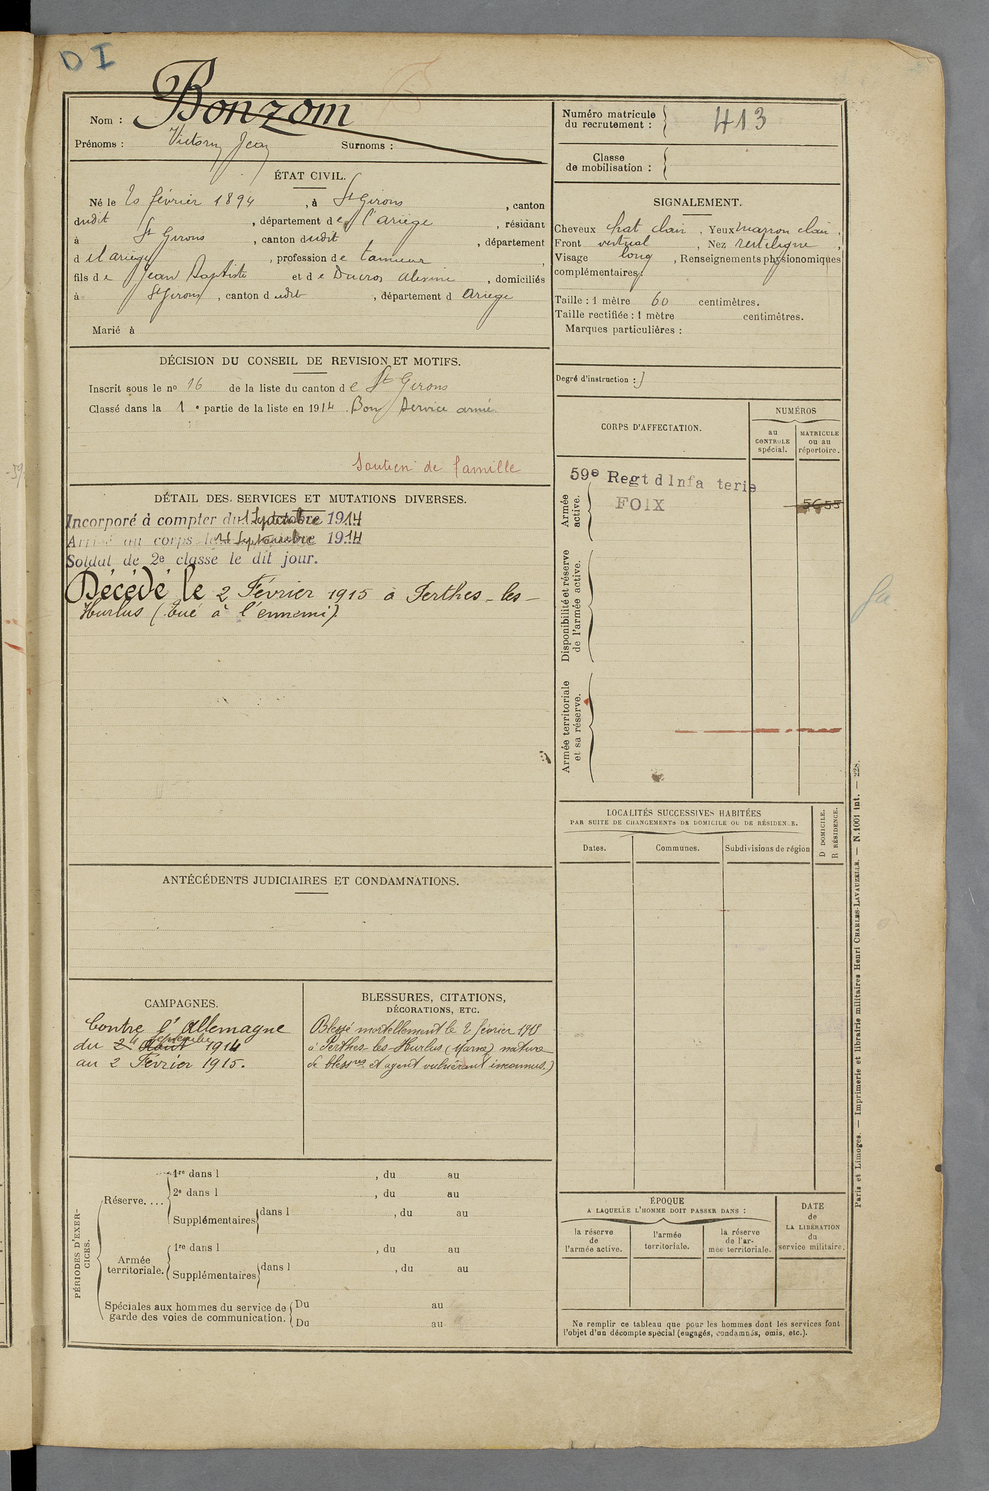 DI
Nom : Bonzom
Prénoms : Victorin Jean Surnoms :
ÉTAT CIVIL.
Né le 20 février 1894, à St Girons, canton
dudit, département de l'ariège, résidant
à St Girons, canton dudit, département
d el ariège, profession de tanneur,
fils de Jean Baptiste et de, domiciliés
à St Girons, canton d udit, département d Ariège
Marié à
DÉCISION DU CONSEIL DE REVISION ET MOTIFS.
Inscrit sous le no 16 de la liste du canton de St Girons
Classé dans la 1e partie de la liste en 1914. Bon Service armé.
Soutien de famille
DÉTAIL DES SERVICES ET MUTATIONS DIVERSES.
Incorporé à compter du 1914
Arrivé au corps le Septembre 1914
Soldat de 2e classe le dit jour.
Décédé le 2 Février 1915 à Perthes-les-
Hurlus (tué à l'ennemi)
ANTÉCÉDENTS JUDICIAIRES ET CONDAMNATIONS.
CAMPAGNES.
Contre l'Allemagne
du Septembre 1914
au 2 Février 1915.
BLESSURES, CITATIONS,
DÉCORATIONS, ETC.
Blessé mortellement le 2 février 1915
à Perthes-les-Hurlus (Marne) nature
de blessures et agent vulnérant inconnus.)
PÉRIODES D'EXER-
CICES.
Réserve....
1re dans l , du au
2e dans l , du au
Supplémentaires dans l , du au
Armée
territoriale.
1re dans l , du au
Supplémentaires dans l , du au
Spéciales aux hommes du service de
garde des voies de communication.
Du au
Du au
Numéro matricule
du recrutement : 413
Classe
de mobilisation :
SIGNALEMENT.
Cheveux chat clair, Yeux marron clair,
Front vertical, Nez rectiligne,
Visage long, Renseignements physionomiques
complémentaires
Taille : 1 mètre 60 centimètres.
Taille rectifiée : 1 mètre centimètres.
Marques particulières :
Degré d'instruction :
CORPS D'AFFECTATION.
NUMÉROS
au
CONTROLE
spécial.
MATRICULE
ou au
répertoire.
Armée
active.
59e Regt d Infa terie
FOIX
5655
Disponibilité et réserve
de l'armée active.
Armée territoriale
et sa réserve.
LOCALITÉS SUCCESSIVES HABITÉES
PAR SUITE DE CHANGEMENTS DE DOMICILE OU DE RÉSIDENCE.
Dates.
Communes.
Subdivisions de région
D DOMICILE.
R RÉSIDENCE.
ÉPOQUE
A LAQUELLE L'HOMME DOIT PASSER DANS :
la réserve
de
l'armée active.
l'armée
territoriale.
la réserve
de l'ar-
mée territoriale.
DATE
de
LA LIBÉRATION
du
service militaire.
Ne remplir ce tableau que pour les hommes dont les services font
l'objet d'un décompte spécial (engagés, condamnés, omis, etc.).
Paris et Limoges. — Imprimerie et librairie militaires Henri CHARLES-LAVAUZELLE. — N. 1001 int. — 228.